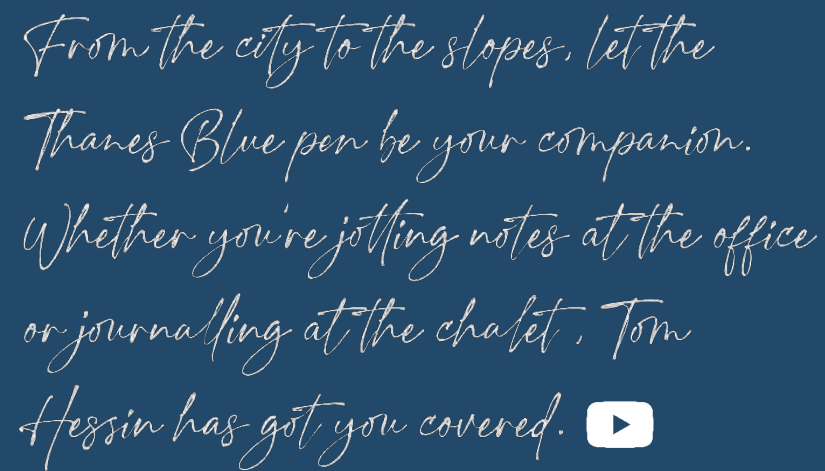 From the city to the slopes, let the
Thanes Blue pen be your companion.
Whether you're jotting notes at the office
or journalling at the chalet , Tom
Hessin has got you covered.